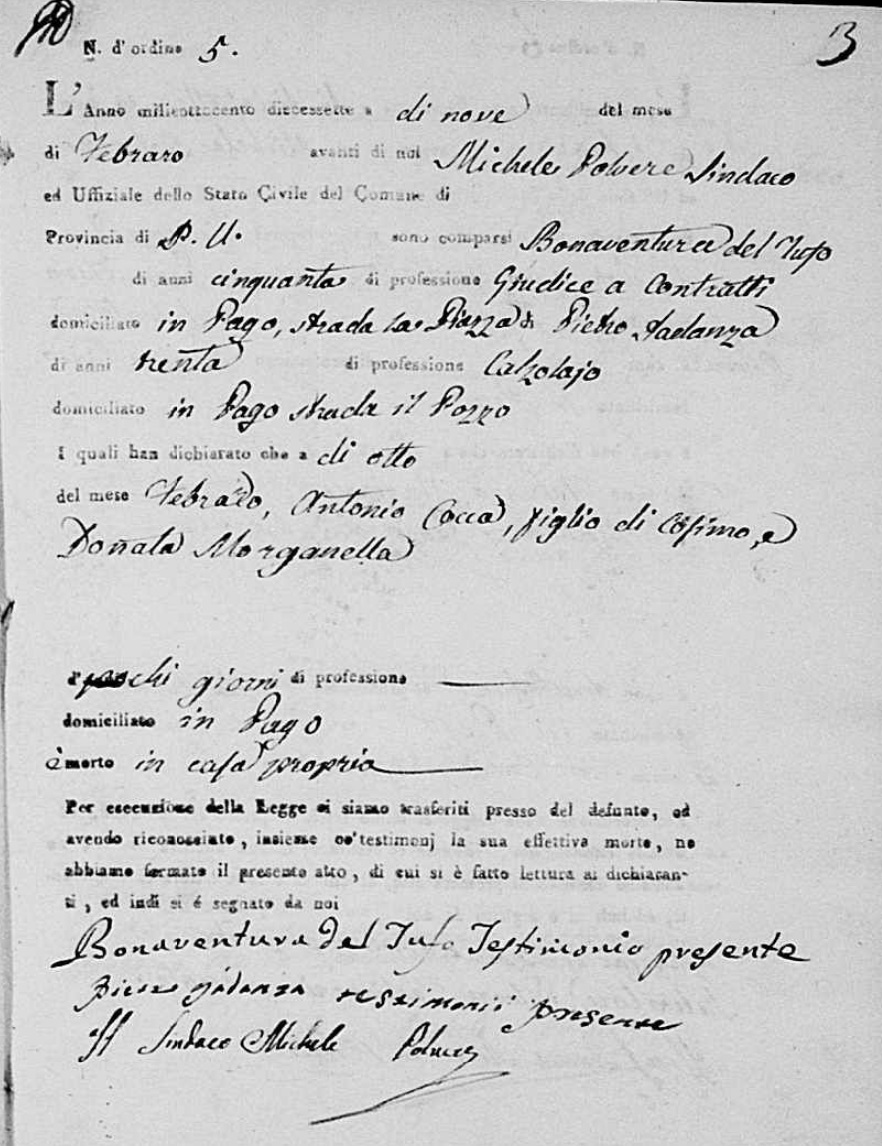 3
N. d'ordine 5.
L'Anno milleottocento diecessette a di nove del mese
di Febraro avanti di noi Michele Polvere Sindaco
ed Uffiziale dello Stato Civile del Comune di
Provincia di P. U. sono comparsi Bonaventura del Tufo
di anni cinquanta di professione Giudice a Contratti
domiciliato in Pago, strada la Piazza di Pietro Iadanza
di anni trenta di professione Calzolajo
domiciliato in Pago strada il Pozzo
I quali han dichiarato che a di otto
del mese Febraro, Antonio Cocca, figlio di Cosimo, e
Donata Morganella
pochi giorni di professione
domiciliato in Pago
è morto in casa propria
Per esecuzione della Legge ci siamo trasferiti presso del defunto, ed
avendo riconosciuto, insieme co' testimonj la sua effettiva morte, ne
abbiamo formato il presente atto, di cui si è fatto lettura ai dichiaran-
ti, ed indi si é segnato da noi
Bonaventura Del Tufo Testimonio presente
iadanza testimonii presente
Sindaco Michele Polvere